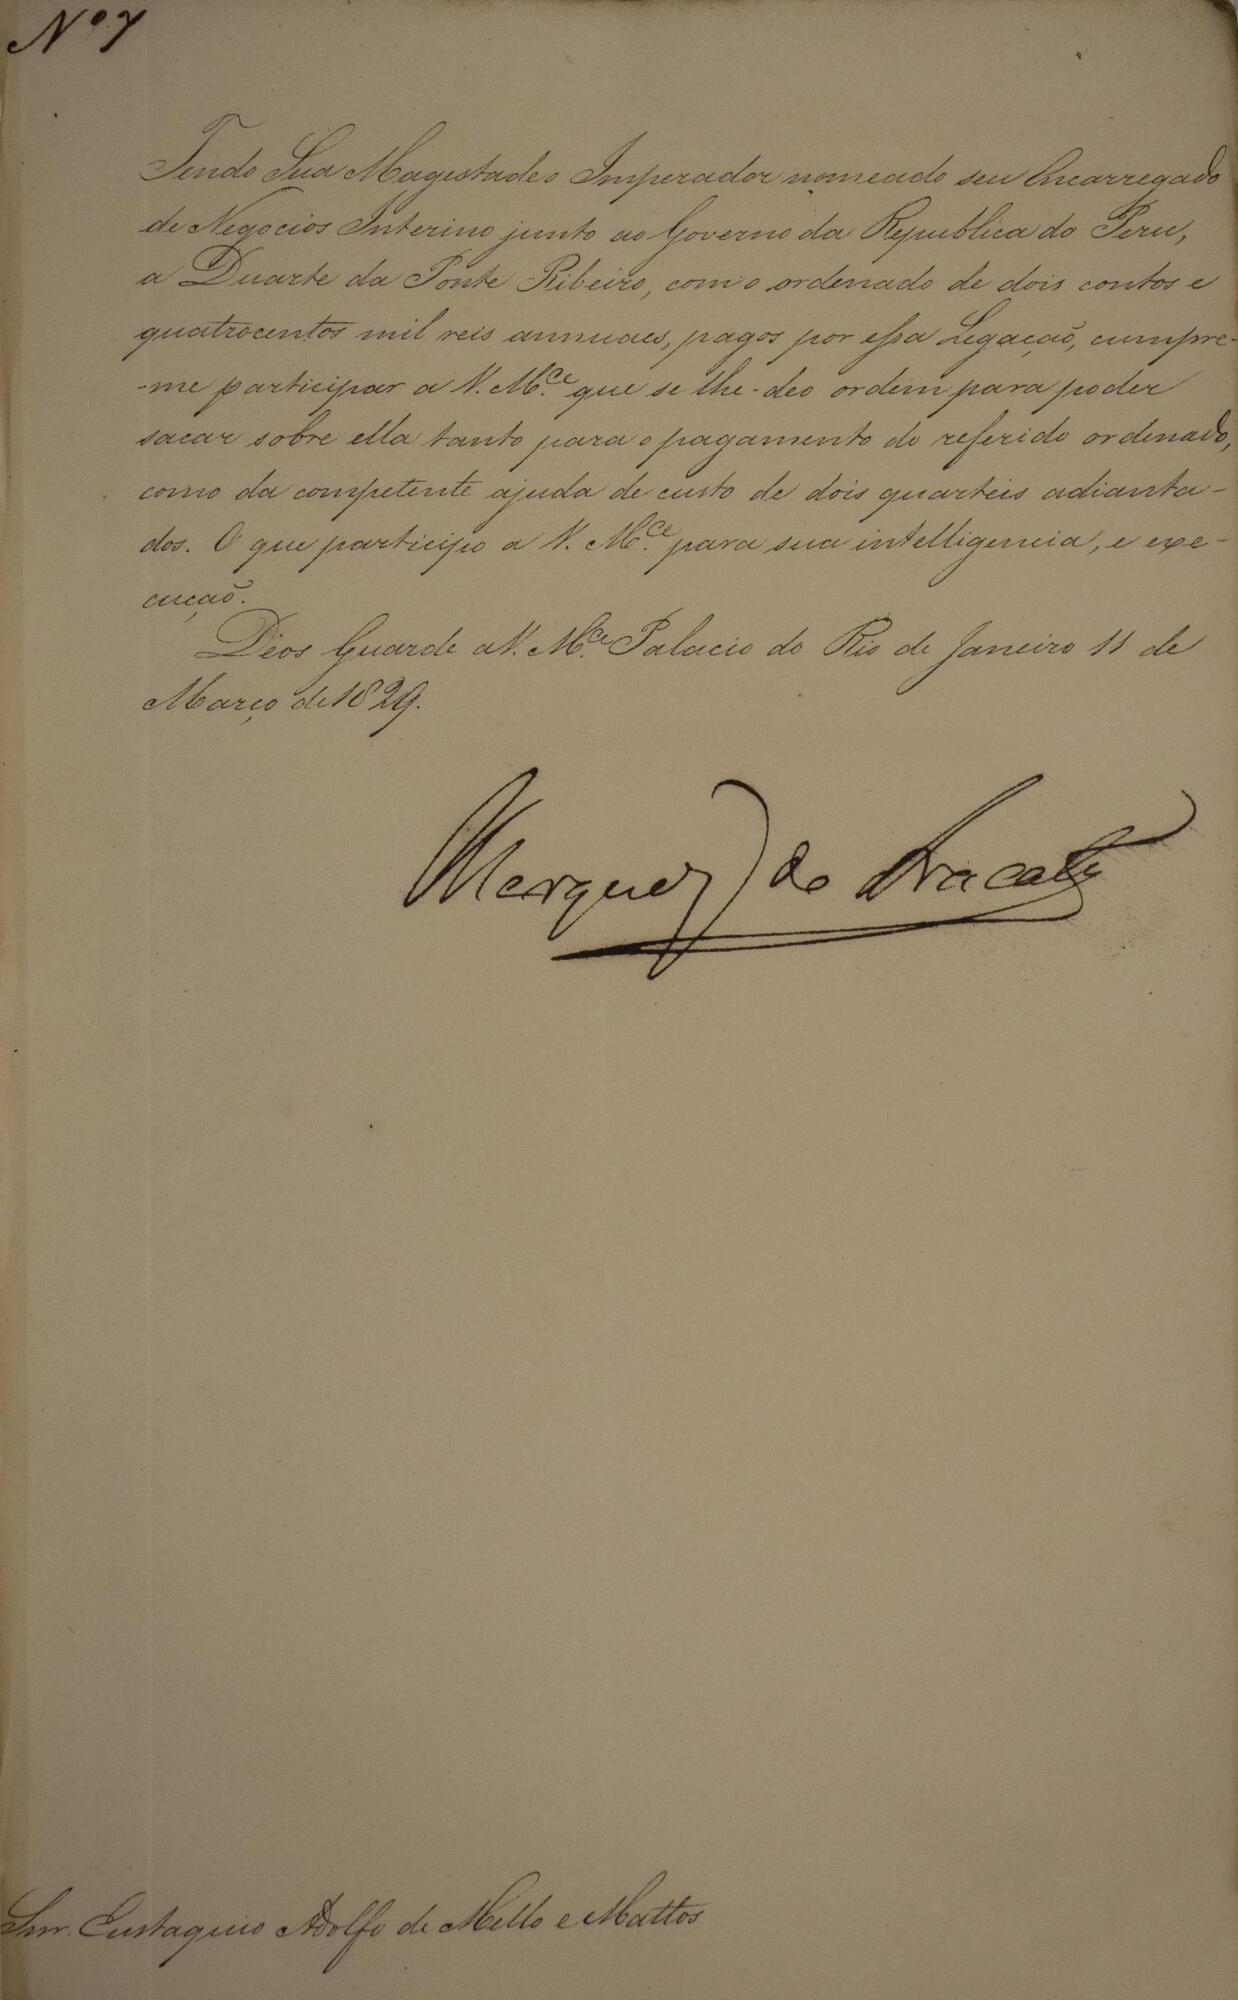 Nº 7
Tendo Sua Magestade o Imperador nomeado seu Encarregado
de Negocios Interino junto ao Governo da Republica do Peru,
a Duarte da Ponte Ribeiro, com o ordenado de dois contos e
quatrocentos mil reis annuaes, pagos por essa Legação, cumpre-
-me participar a V. M.ce que se lhe-deo ordem para poder
sacar sobre ella tanto para o pagamento do referido ordenado,
como da competente ajuda de custo de dois quarteis adianta-
dos. O que participo a V. M.ce para sua intelligencia, e exe-
cução.
Deos Guarde a V. M.ce Palacio do Rio de Janeiro 11 de
Março de 1829.
Marquez do Aracaty
Snr. Eustaquio Adolfo de Mello e Mattos